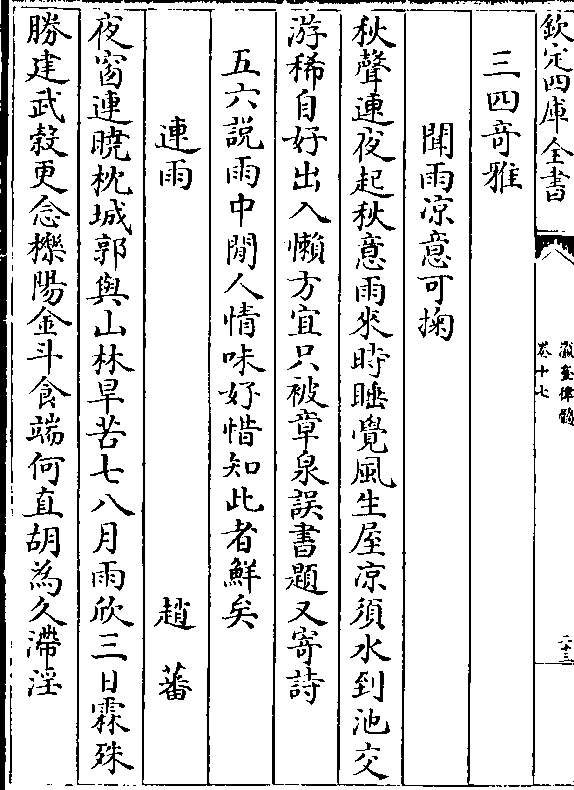 欽定四庫全書
瀛奎律髓
卷十七
二十三
三四奇雅
聞雨凉意可掬
秋聲連夜起秋意雨來時睡覺風生屋凉須水到池交
游稀自好出入懶方宜只被章泉誤書題又寄詩
五六説雨中閒人情味好惜知此者鮮矣
連雨 趙蕃
夜窗連曉枕城郭與山林旱苦七八月雨欣三日霖殊
勝建武穀更念櫟陽金斗食端何直胡為久滯淫